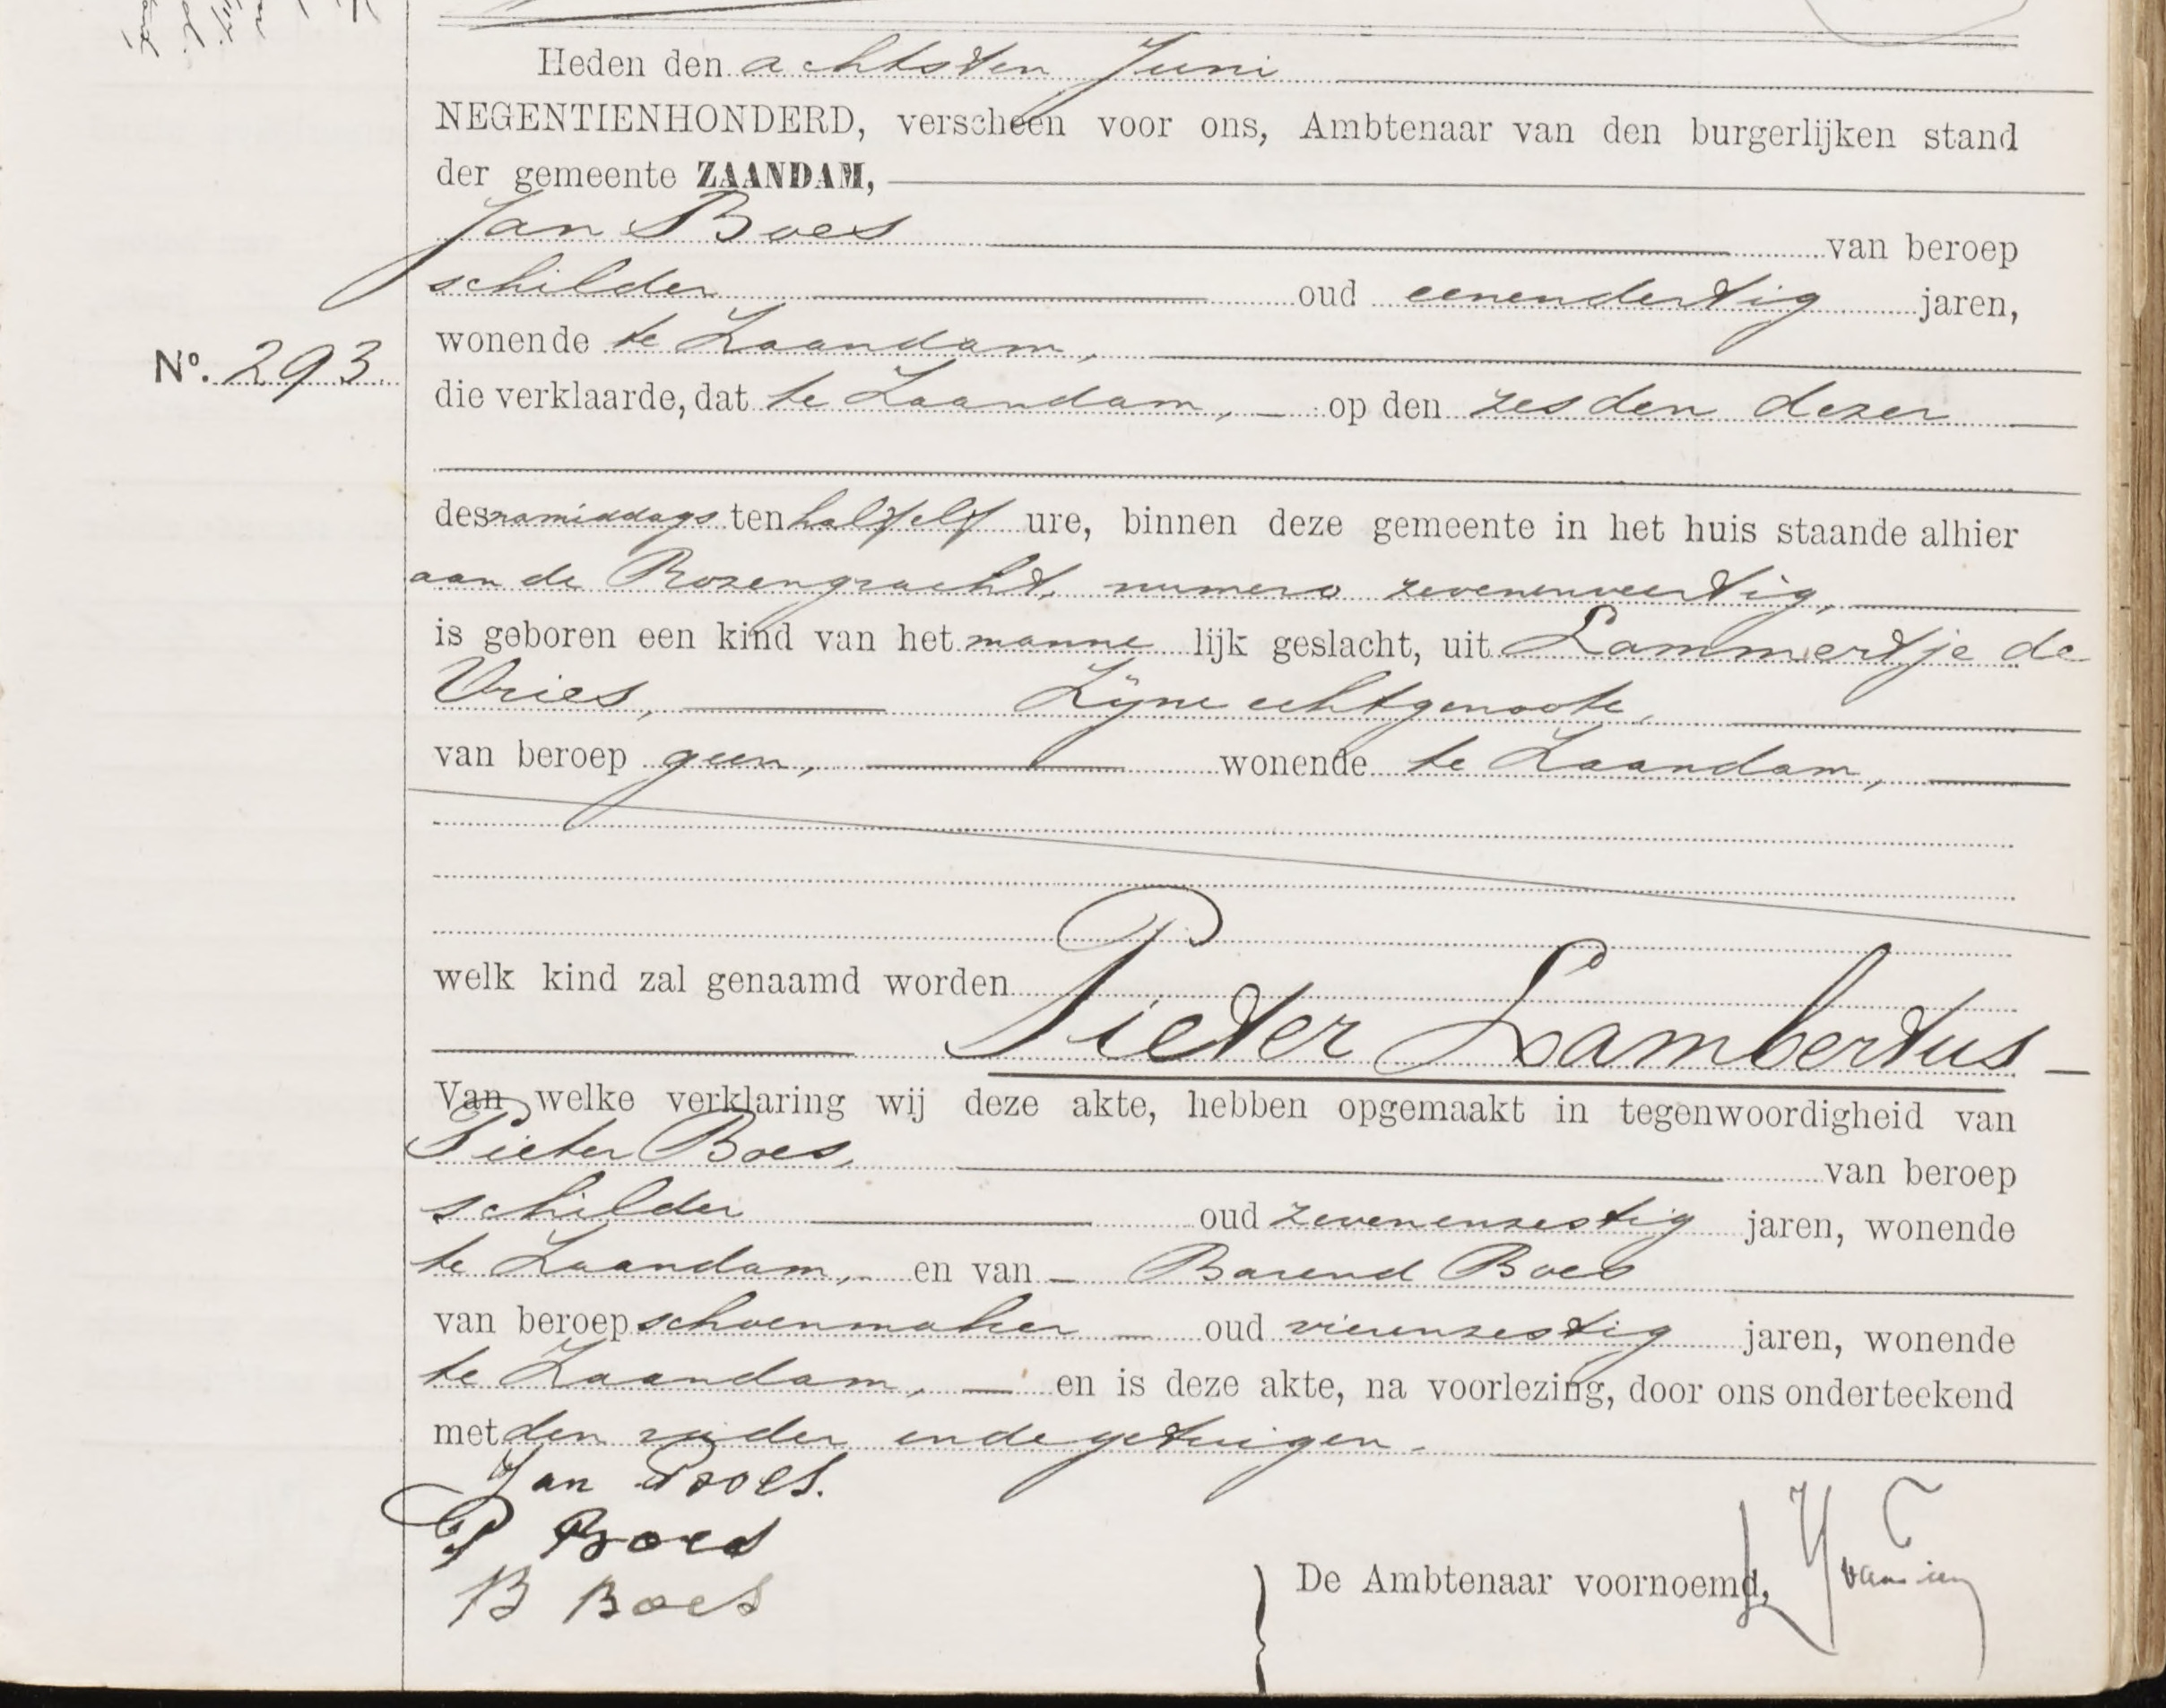 Heden den achtsten Juni
NEGENTIENHONDERD, verscheen voor ons, Ambtenaar van den burgerlijken stand
der gemeente ZAANDAM,
Jan Boes van beroep
schilder oud eenendertig jaren,
Nº. 293
wonende te Zaandam,
die verklaarde, dat te Zaandam, op den zesden dezer
des namiddags ten half elf ure, binnen deze gemeente in het huis staande alhier
aan de Rozengracht, numero zevenenveertig,
is geboren een kind van het manne lijk geslacht, uit Lammertje de
Vries, Zijne echtgenoote,
van beroep geen, wonende te Zaandam,
welk kind zal genaamd worden
Pieter Lambertus
Van welke verklaring wij deze akte, hebben opgemaakt in tegenwoordigheid van
Pieter Boes, van beroep
schilder oud zevenenzestig jaren, wonende
te Zaandam, en van Barend Boes
van beroep schoenmaker oud vierenzestig jaren, wonende
te Zaandam, en is deze akte, na voorlezing, door ons onderteekend
met den vader en de getuigen.
Jan Boes.
P Boes
B Boes
De Ambtenaar voornoemd,